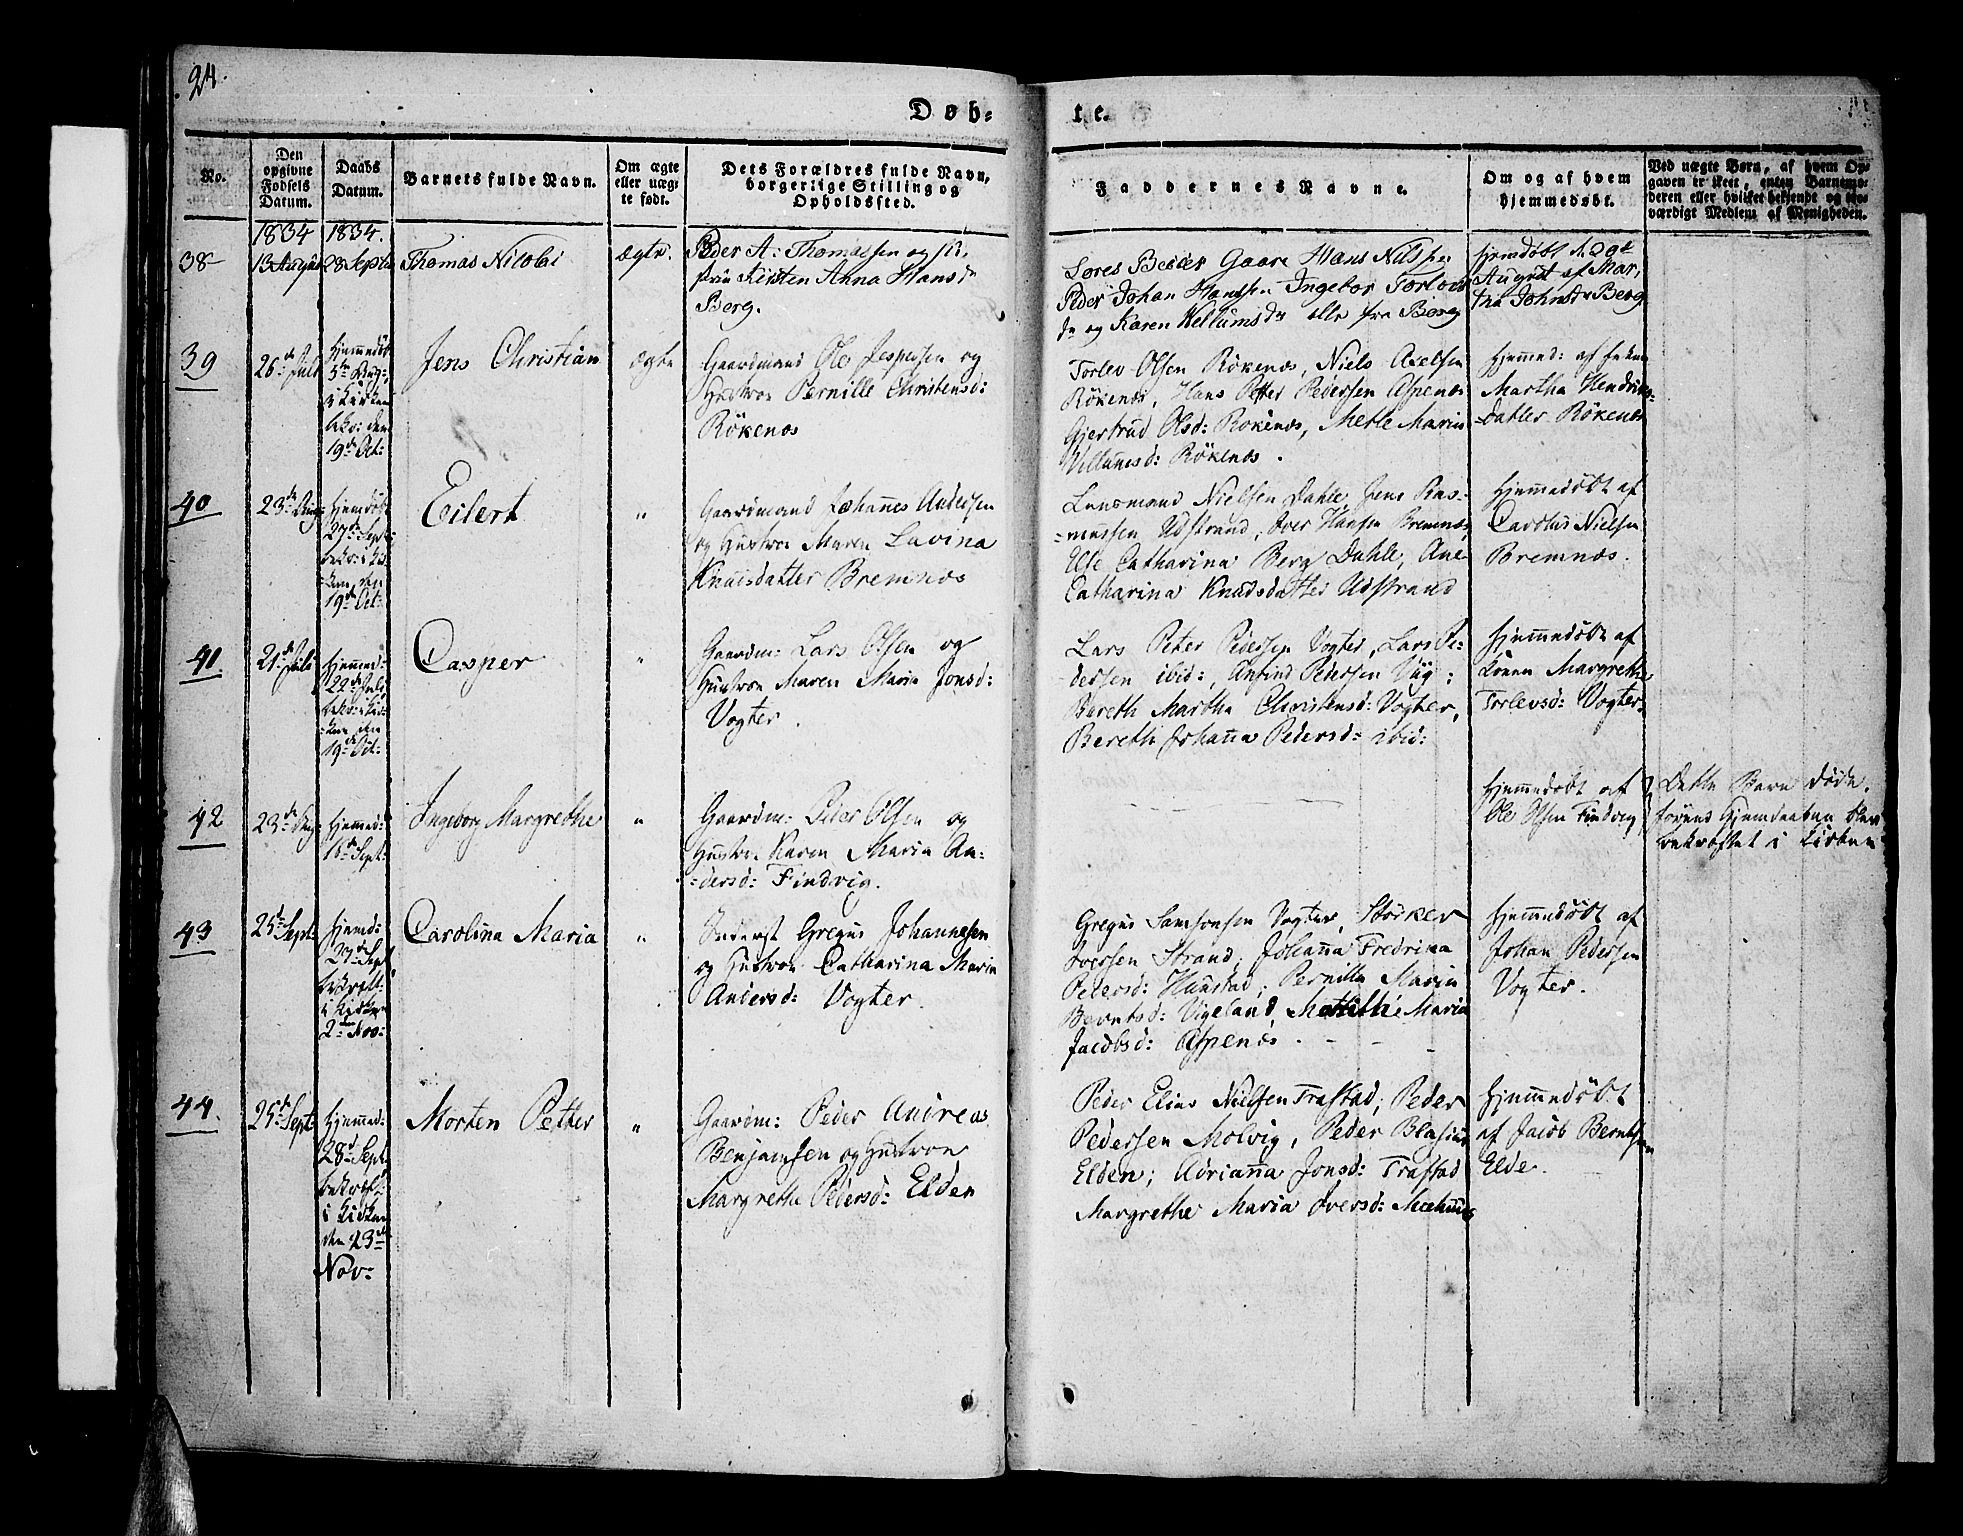 24.
Døb=
te.
No.
Den opgivne Fødsels Datum.
Daabs Datum.
Barnets fulde Navn.
Om ægte eller uægte født.
Dets Forældres fulde Navn, borgerlige Stilling og Opholdssted.
Faddernes Navne.
Om og af hvem hjemmedøbt.
Ved uægte Børn, af hvem Opgaven er skeet, enten Barnemoderen eller hvilket bekjendt og troværdigt Medlem af Menigheden.
1834
1834.
38
13 August
28 Septb
Thomas Nicolai
ægte.
Peder A: Thomassen og
Kirsten Anna Hansd
Berg.
Gaare Hans Nilsen
Peder Johan Hansen Ingebor Torlevs
d og Karen Vellumsd alle fra Berg
hjemdøbt d. 29de
August af Mar,
tha Johnsdr Berg
39
26de Juli
Hjemmedøbt
5te Aug:
i Kirken
bekr: den
19de Oct:
Jens Christian
ægte
Gaardmand Ole Jespersen og
Hustroe Pernille Christensd:
Rökenæs
Torlev Olsen Rökenæs, Niels Axelsen
Rökenæs, Hans Petter Pedersen Aspenæs
Gjertrud Olsd: Rökenæs, Mette Maria
Villumsd: Rökenæs.
Hjemmed: af
Martha Hendriks-
datter Rökenæs
40
23de Aug:
Hjemdøbt
27de Sept:
bekr: i Kir
=ken den
19de Oct:
Eilert
"
Gaardmand Johannes Andersen
og Hustroe Maren Lavina
Knudsdatter Bremnæs
Lensmand Nielsen Dahle, Jens Ras=
=mussen Udstrand, Iver Hansen Bremnæs,
Else Catharina Berg Dahle, Ane
Catharina Knudsdatter Udstrand
Hjemmedøbt af
Carolus Nielsen
Bremnæs.
41
21de Juli
Hjemmed:
22de Juli
bekr: i Kir
=ken den
19de Oct:
Casper
"
Gaardm: Lars Olsen og
Hustroe Maren Maria Jonsd:
Vogter.
Lars Peter Pedersen Vogter, Lars Pe=
dersen ibid:, Anfind Pedersen Viig:
Bereth Martha Christensd: Vogter,
Bereth Johanna Pedersd: ibid:
Hjemmedøbt af
Margrethe
Torlevsd: Vogter.
42
23de Aug:
Hjemmed:
18de Sept:
Ingeborg Margrethe
"
Gaardm: Peder Olsen og
Hustroe Karen Maria An=
=dersd: Findvig.
Hjemmedøbt af
Ole Olsen Findvig
Dette Barn døde,
førend Hjemdaaben blev
bekræftet i Kirken
43
25de Sept:
Hjemd:
27de Sept
bekræft:
i Kirken
2den Nov:
Carolina Maria
"
Inderst Gregus Johannesen
og Hustroe Catharina Maria
Andersd: Vogter.
Gregus Samsonsen Vogter, Störker
Iversen Strand, Johanna Fredrica
Pedersd: Haustad, Pernilla Maria
Berntsd: Vigeland, Maria
Jacobsd: Aspenæs.
Hjemmedøbt af
Johan Pedersen
Vogter.
44.
25de Sept:
Hjemmed:
28de Sept
bekræft:
i Kirken
den 23de
Nov:
Morten Petter
"
Gaardm: Peder Andreas
Benjamsen og Hustroe
Margrethe Pedersd: Elden
Peder Elias Nielsen Trastad, Peder
Pedersen Molvig, Peder Blasius
Elden; Adrianna Jonsd: Trastad
Margrethe Maria Iversd:
Hjemmedøbt
af Jacob Berntsen
Elde.